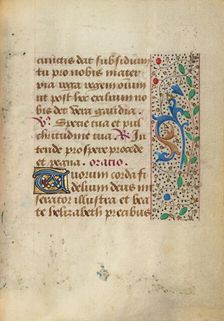 cunctis dat subsidium
tu pro nobis mater
pia vera precamur
ut post hec exilium no
bis det vera gaudia.
V. Specie tua et pul
chritudine tua R. In
tende prospere procede
et regna. oratio.
Quorum corda fi
delium deus mi
serator illustra et bea
te helizabeth precibus